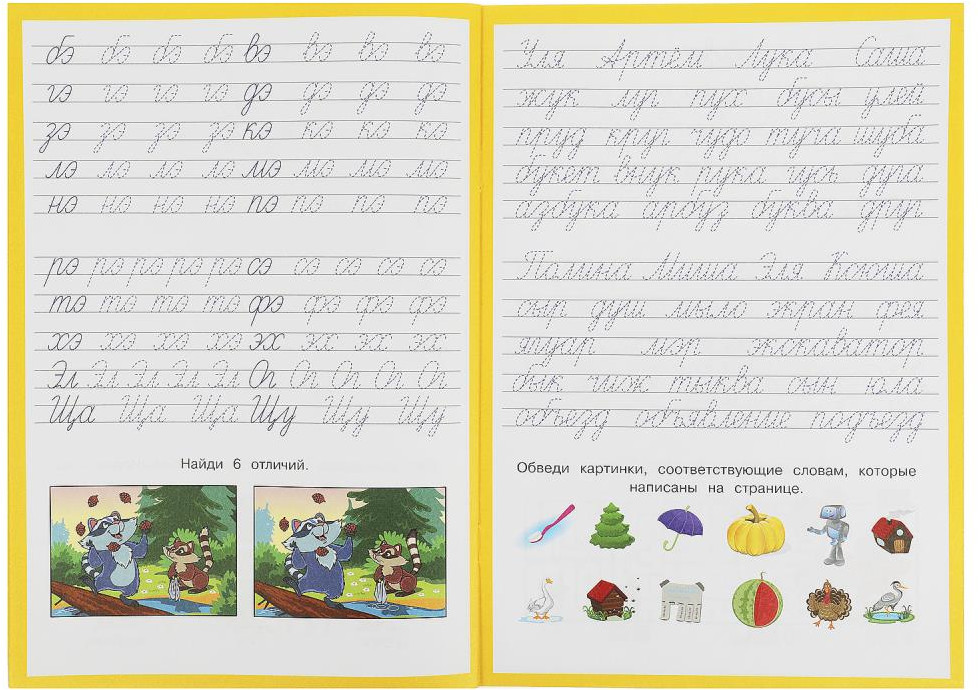 бэ бэ бэ бэ вэ вэ вэ вэ
гэ гэ гэ гэ дэ дэ дэ дэ
зэ зэ зэ зэ кэ кэ кэ кэ
лэ лэ лэ лэ мэ мэ мэ мэ
нэ нэ нэ нэ пэ пэ пэ пэ
рэ рэ рэ рэ рэ сэ сэ сэ сэ сэ
тэ тэ тэ тэ фэ фэ фэ фэ
хэ хэ хэ хэ эх эх эх эх
Эл Эл Эл Эл Эл Ог Ог Ог Ог Ог
Ща Ща Ща Щу Щу Щу
Найди 6 отличий.
Уля Артём Лука Саша
жук луг пух бусы улей
пруд круг чудо туча шуба
букет внук рука гусь дуга
азбука арбуз буква друг
Полина Миша Эля Ксюша
сыр душ мыло экран фея
ягуар мэр экскаватор
бык чиж тыква сын юла
объезд объявление подъезд
Обведи картинки, соответствующие словам, которые
написаны на странице.